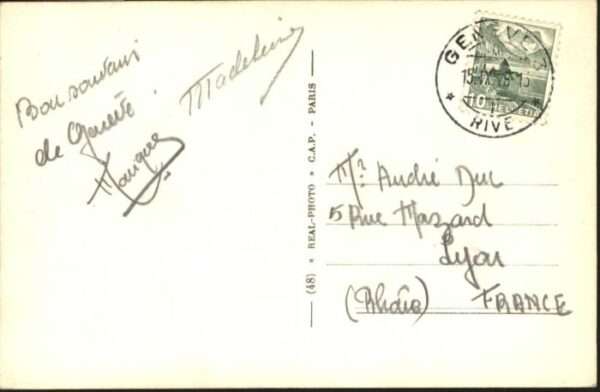 Bon souvenir
de Genève.
Madeleine
(48) * REAL-PHOTO * C.A.P. - PARIS
GENÈVE
RIVE
10
HELVETIA
Mr André Duc
5 Rue Mazard
Lyon
(Rhône) FRANCE